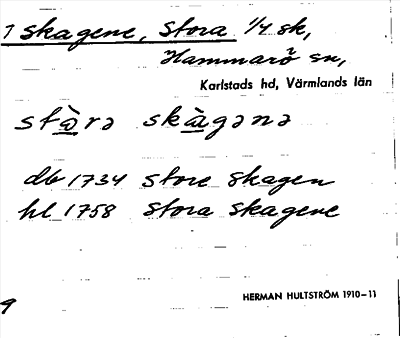 1 Skagene, Stora 1/4 sk,
Hammarö sn,
Karlstads hd, Värmlands län
stὰ̱rə skὰ̱gənə
db 1734 store skagen
hl 1758 stora skagene
HERMAN HULTSTRÖM 1910–11